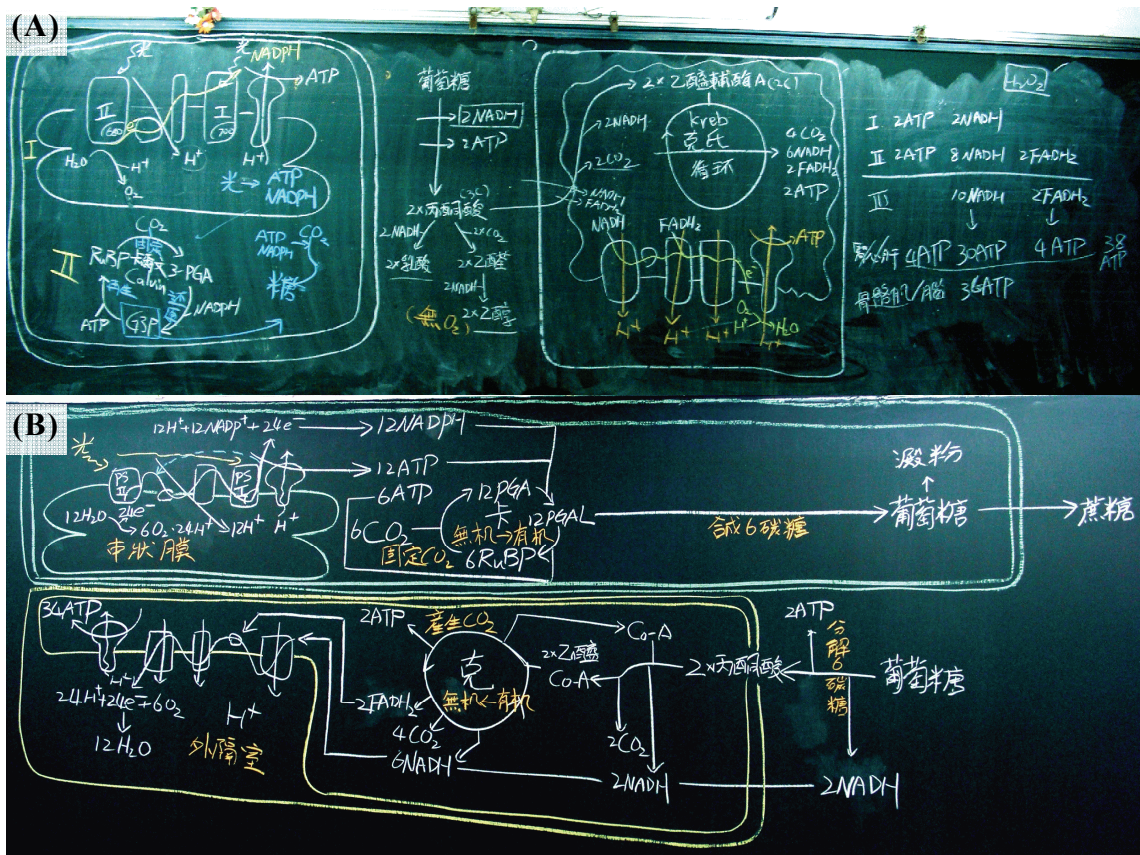 (A)
光
光
NADPH
ATP
II
680
I
700
e⁻
I
H₂O
H⁺
H⁺
H⁺
O₂
光 → ATP
NADPH
CO₂
固定
II
RuBP
卡氏
3-PGA
Calvin
再生
還原
NADPH
ATP
G3P
ATP
NADPH
CO₂
糖
葡萄糖
2NADH
2ATP
(3C)
2×丙酮酸
2NADH
2×CO₂
2×乳酸
2×乙醛
2NADH
(無O₂)
2×乙醇
2×乙醯輔酶A(2C)
2NADH
2CO₂
kreb
克氏
循环
4CO₂
6NADH
2FADH₂
2ATP
NADH
FADH₂
NADH
FADH₂
ATP
e⁻
O₂
H⁺
H₂O
H⁺
H⁺
H⁺
H⁺
H₂O₂
I 2ATP 2NADH
II 2ATP 8NADH 2FADH₂
III 10NADH 2FADH₂
4ATP 30ATP 4ATP 38
ATP
骨骼肌/腦 36ATP
(B)
12H⁺+12NADP⁺+24e⁻ → 12NADPH
光
PS
II
PS
I
12ATP
24e⁻
12H₂O
6O₂·24H⁺
12H⁺
H⁺
串狀膜
6ATP
12PGA
卡
12PGAL
6CO₂
無机→有机
固定CO₂
6RuBP
鹼6碳糖
澱粉
葡萄糖
蔗糖
34ATP
H⁺
24H⁺+24e⁻+6O₂
12H₂O
H⁺
外隔室
2ATP
產生CO₂
克
無机←有机
2FADH₂
4CO₂
6NADH
Co-A
2×乙醯
CoA
2CO₂
2NADH
2×丙酮酸
2ATP
分解6碳糖
葡萄糖
2NADH